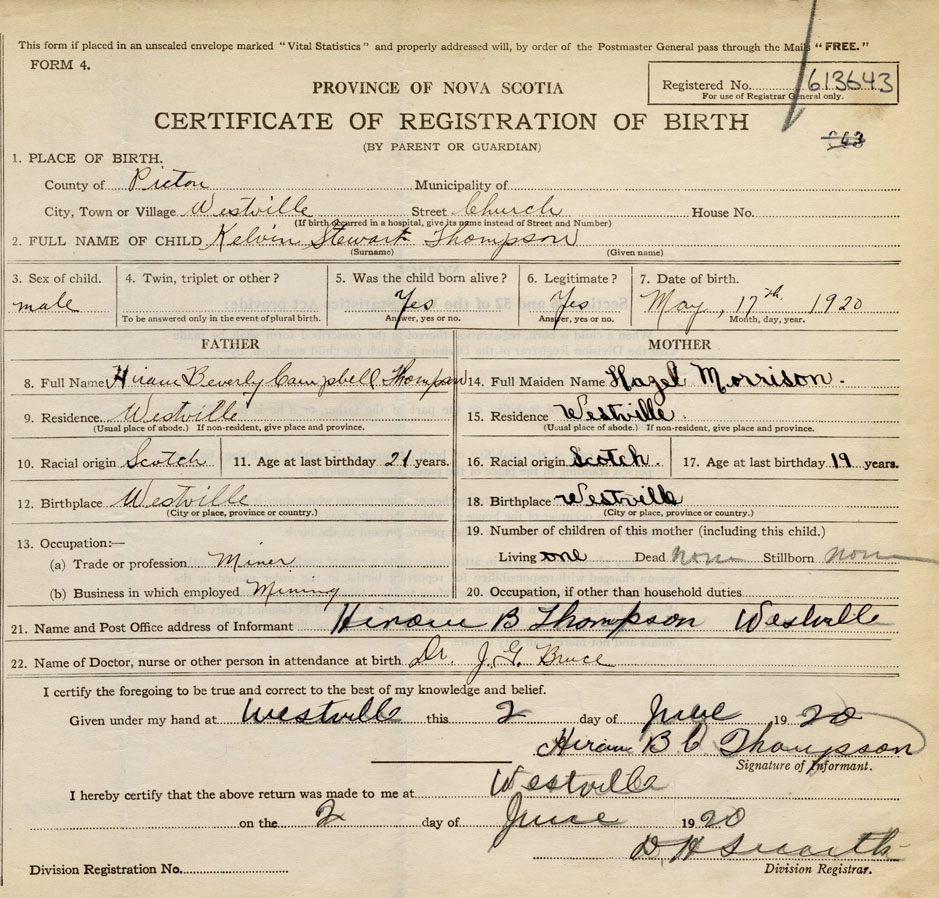 This form if placed in an unsealed envelope marked "Vital Statistics" and properly addressed will, by order of the Postmaster General pass through the Mails "FREE."
FORM 4.
Registered No. 613643
For use of Registrar General only.
PROVINCE OF NOVA SCOTIA
CERTIFICATE OF REGISTRATION OF BIRTH
(BY PARENT OR GUARDIAN)
1. PLACE OF BIRTH.
County of Pictou Municipality of
City, Town or Village Westville Street Church House No.
(If birth occurred in a hospital, give its name instead of Street and Number)
2. FULL NAME OF CHILD Kelvin Stewart Thompson
(Surname) (Given name)
3. Sex of child. 4. Twin, triplet or other? 5. Was the child born alive? 6. Legitimate? 7. Date of birth.
male Yes Yes May, 17th 1920
To be answered only in the event of plural birth. Answer, yes or no. Answer, yes or no. Month, day, year.
FATHER MOTHER
8. Full Name Hiram Beverly Campbell Thompson 14. Full Maiden Name Hazel Morrison.
9. Residence Westville 15. Residence Westville.
(Usual place of abode.) If non-resident, give place and province. (Usual place of abode.) If non-resident, give place and province.
10. Racial origin Scotch 11. Age at last birthday 21 years. 16. Racial origin Scotch. 17. Age at last birthday 19 years.
12. Birthplace Westville 18. Birthplace Westville
(City or place, province or country.) (City or place, province or country.)
13. Occupation:— 19. Number of children of this mother (including this child.)
(a) Trade or profession Miner Living one Dead none Stillborn none
(b) Business in which employed Mining 20. Occupation, if other than household duties
21. Name and Post Office address of Informant Hiram B Thompson Westville
22. Name of Doctor, nurse or other person in attendance at birth Dr. J. G. Bruce
I certify the foregoing to be true and correct to the best of my knowledge and belief.
Given under my hand at Westville this 2 day of June 1920
Hiram B C Thompson
Signature of Informant.
I hereby certify that the above return was made to me at Westville
on the 2 day of June 1920
D H
Division Registration No. Division Registrar.